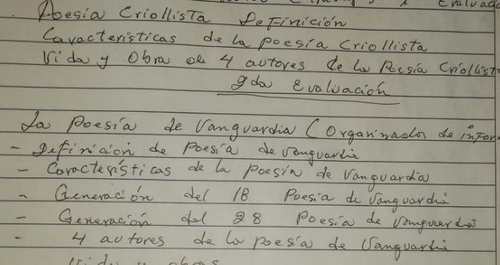 Poesía Criollista Definición
Características de la poesía Criollista
Vida y Obra de 4 autores de la Poesía Criollista
2da Evaluación
La Poesía de Vanguardia (Organizador de infor
- Definición de Poesía de vanguardia
- Características de la poesía de Vanguardia
- Generación del 18 Poesía de Vanguardia
- Generación del 28 Poesía de Vanguardia
- 4 autores de la poesía de Vanguardia
Vida y obras